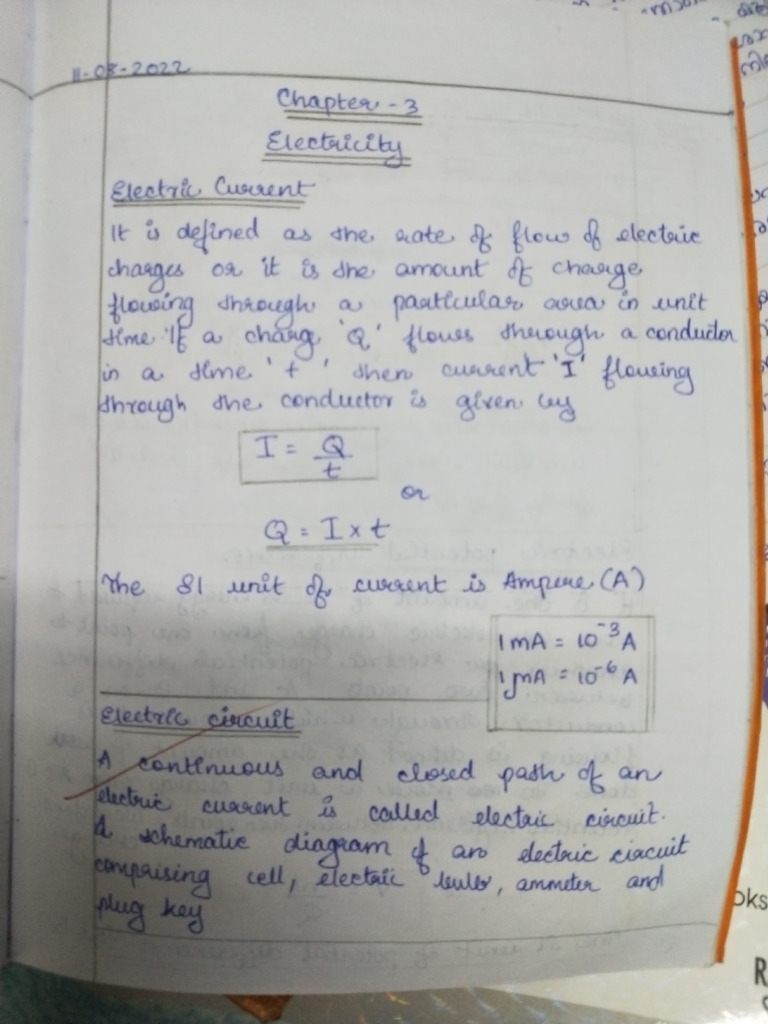 11-08-2022
Chapter - 3
Electricity
Electric Current
It is defined as the rate of flow of electric
charges or it is the amount of charge
flowing through a particular area in unit
time. If a charg 'Q' flows through a conductor
in a time 't' then current 'I' flowing
through the conductor is given by
I = Q/t
or
Q = I × t
The SI unit of current is Ampere (A)
1 mA = 10⁻³ A
1 μA = 10⁻⁶ A
Electric circuit
A continuous and closed path of an
electric current is called electric circuit.
A schematic diagram of an electric circuit
comprising cell, electric bulb, ammeter and
plug key
oks
R